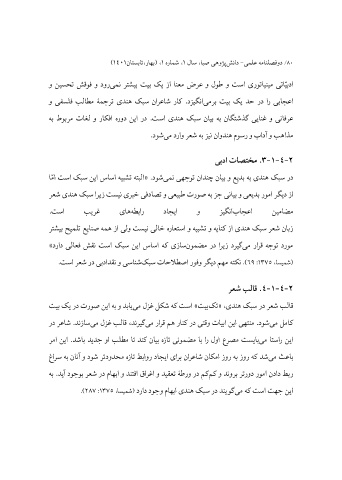 ۸۰/ دوفصلنامه علمی- دانش‌پژوهی صبا، سال ۱، شماره ۱، (بهار،تابستان۱۴۰۱)
ادبیّاتی مینیاتوری است و طول و عرض معنا از یک بیت بیشتر نمی‌رود و فوقش تحسین و
اعجابی را در حد یک بیت برمی‌انگیزد. کار شاعران سبک هندی ترجمۀ مطالب فلسفی و
عرفانی و غنایی گذشتگان به بیان سبک هندی است. در این دوره افکار و لغات مربوط به
مذاهب و آداب و رسوم هندوان نیز به شعر وارد می‌شود.
۲-۴-۱-۳. مختصات ادبی
در سبک هندی به بدیع و بیان چندان توجهی نمی‌شود. «البته تشبیه اساس این سبک است امّا
از دیگر امور بدیعی و بیانی جز به صورت طبیعی و تصادفی خبری نیست زیرا سبک هندی شعر
مضامین اعجاب‌انگیز و ایجاد رابطه‌های غریب است.
زبان شعر سبک هندی از کنایه و تشبیه و استعاره خالی نیست ولی از همه صنایع تلمیح بیشتر
مورد توجه قرار می‌گیرد زیرا در مضمون‌سازی که اساس این سبک است نقش فعالی دارد»
(شمیسا، ۱۳۷۵: ۶۹). نکته مهم دیگر وفور اصطلاحات سبک‌شناسی و نقدادبی در شعر است.
۲-۴-۱-۴. قالب شعر
قالب شعر در سبک هندی، «تک‌بیت» است که شکل غزل می‌یابد و به این صورت در یک بیت
کامل می‌شود. منتهی این ابیات وقتی در کنار هم قرار می‌گیرند، قالب غزل می‌سازند. شاعر در
این راستا می‌بایست مصرع اول را با مضمونی تازه بیان کند تا مطلب او جدید باشد. این امر
باعث می‌شد که روز به روز امکان شاعران برای ایجاد روابط تازه محدودتر شود و آنان به سراغ
ربط دادن امور دورتر بروند و کم‌کم در ورطۀ تعقید و اغراق افتند و ابهام در شعر بوجود آید. به
این جهت است که می‌گویند در سبک هندی ابهام وجود دارد (شمیسا، ۱۳۷۵: ۲۸۷).